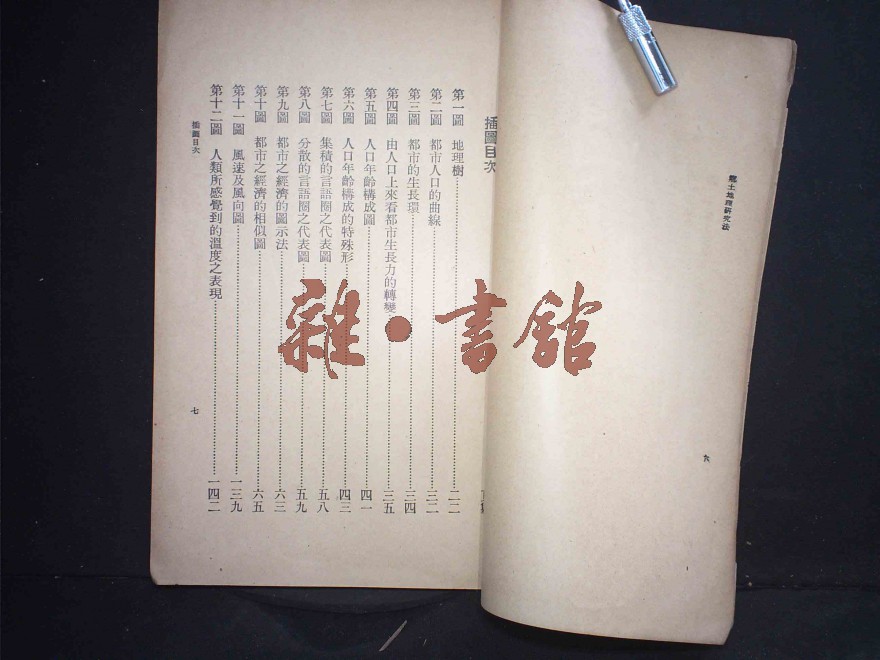 鄉土地理研究法
六
插圖目次
頁數
第一圖 地理樹……二二
第二圖 都市人口的曲線……三二
第三圖 都市的生長環……三四
第四圖 由人口上來看都市生長力的轉變……三五
第五圖 人口年齡構成圖……四一
第六圖 人口年齡構成的特殊形……四三
第七圖 集積的言語圈之代表圖……五八
第八圖 分散的言語圈之代表圖……五九
第九圖 都市之經濟的圖示法……六三
第十圖 都市之經濟的相似圖……六五
第十一圖 風速及風向圖……一三九
第十二圖 人類所感覺到的溫度之表現……一四二
插圖目次
七
雜·書館